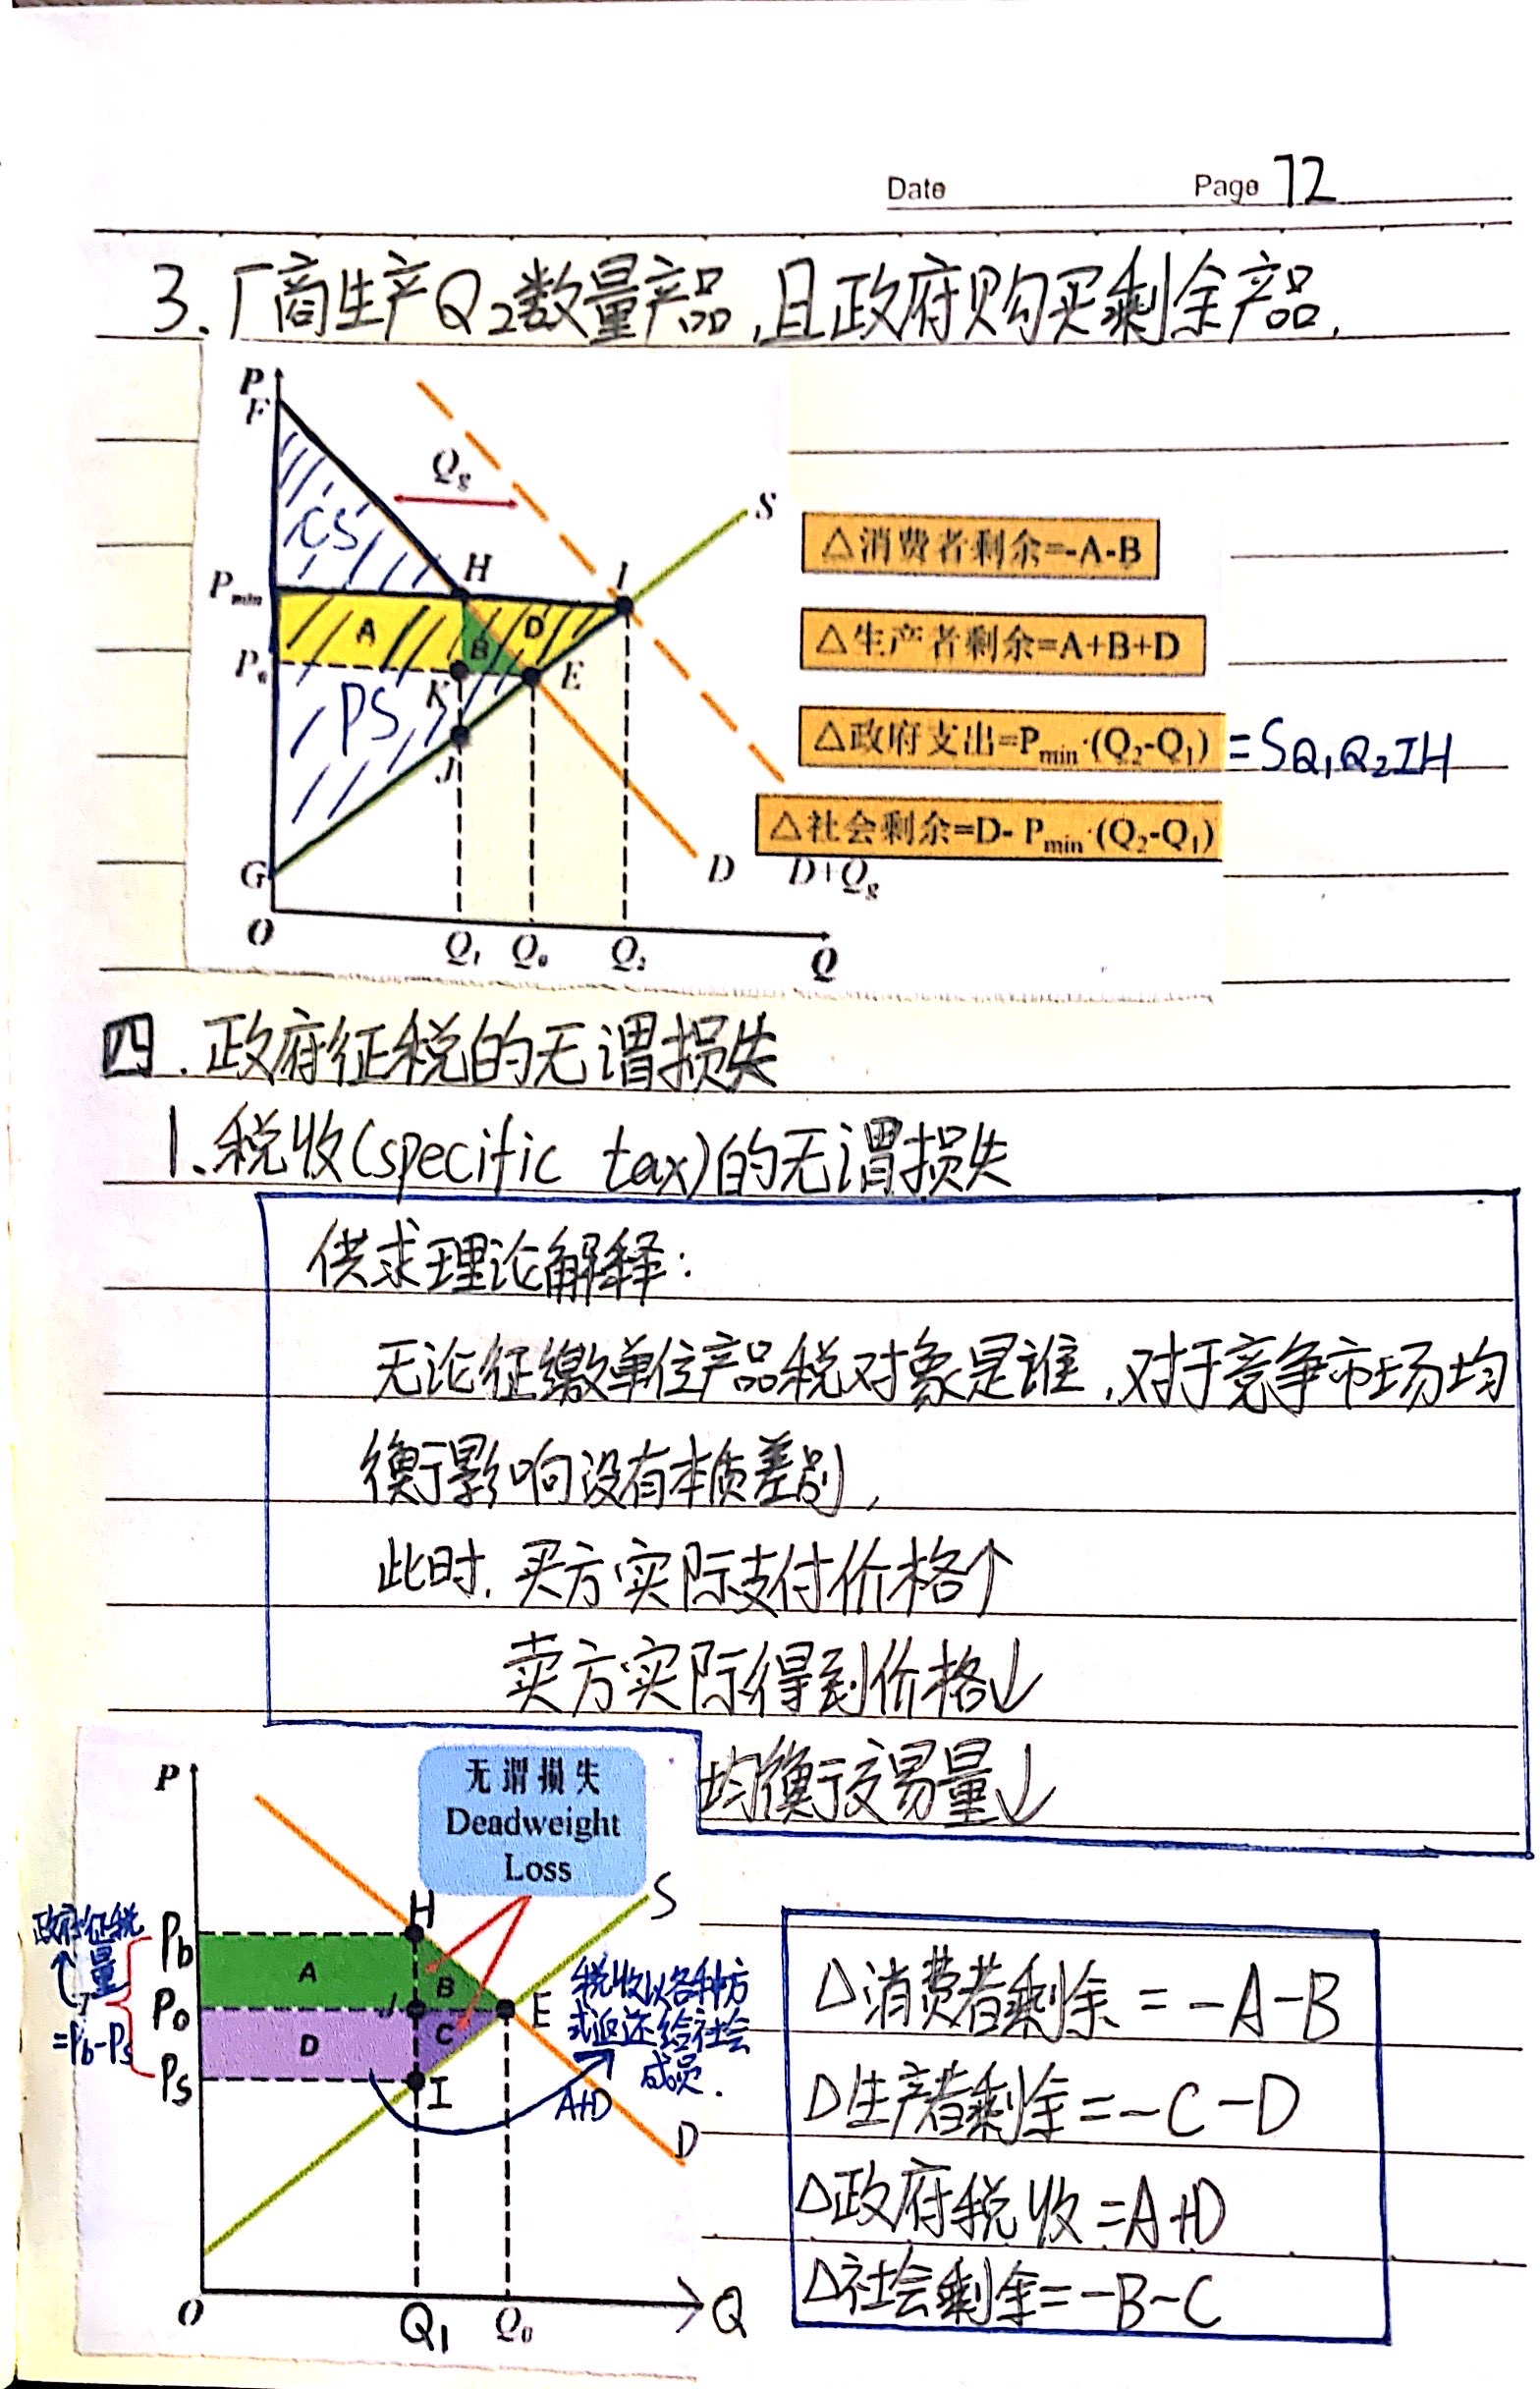 Date Page 72
3.厂商生产Q₂数量产品,且政府购买剩余产品.
P
F
Qg
CS
S
H
I
Pmin
A
B
D
P₀
K
E
PS
J
G
O
Q₁ Q₀ Q₂ Q
D D+Qg
△消费者剩余=-A-B
△生产者剩余=A+B+D
△政府支出=Pmin·(Q₂-Q₁) =S Q₁Q₂IH
△社会剩余=D- Pmin·(Q₂-Q₁)
四.政府征税的无谓损失
1.税收(specific tax)的无谓损失
供求理论解释:
无论征缴单位产品税对象是谁,对于竞争市场均
衡影响没有本质差别,
此时,买方实际支付价格↑
卖方实际得到价格↓
均衡交易量↓
P
无谓损失
Deadweight
Loss
S
H
政府征税
量
Pb
A
B
P₀
J
E
=Pb-Ps
D
C
Ps
I
税收以各种方
式返还给社会
成员.
A+D
D
O
Q₁ Q₀ Q
△消费者剩余=-A-B
△生产者剩余=-C-D
△政府税收=A+D
△社会剩余=-B-C